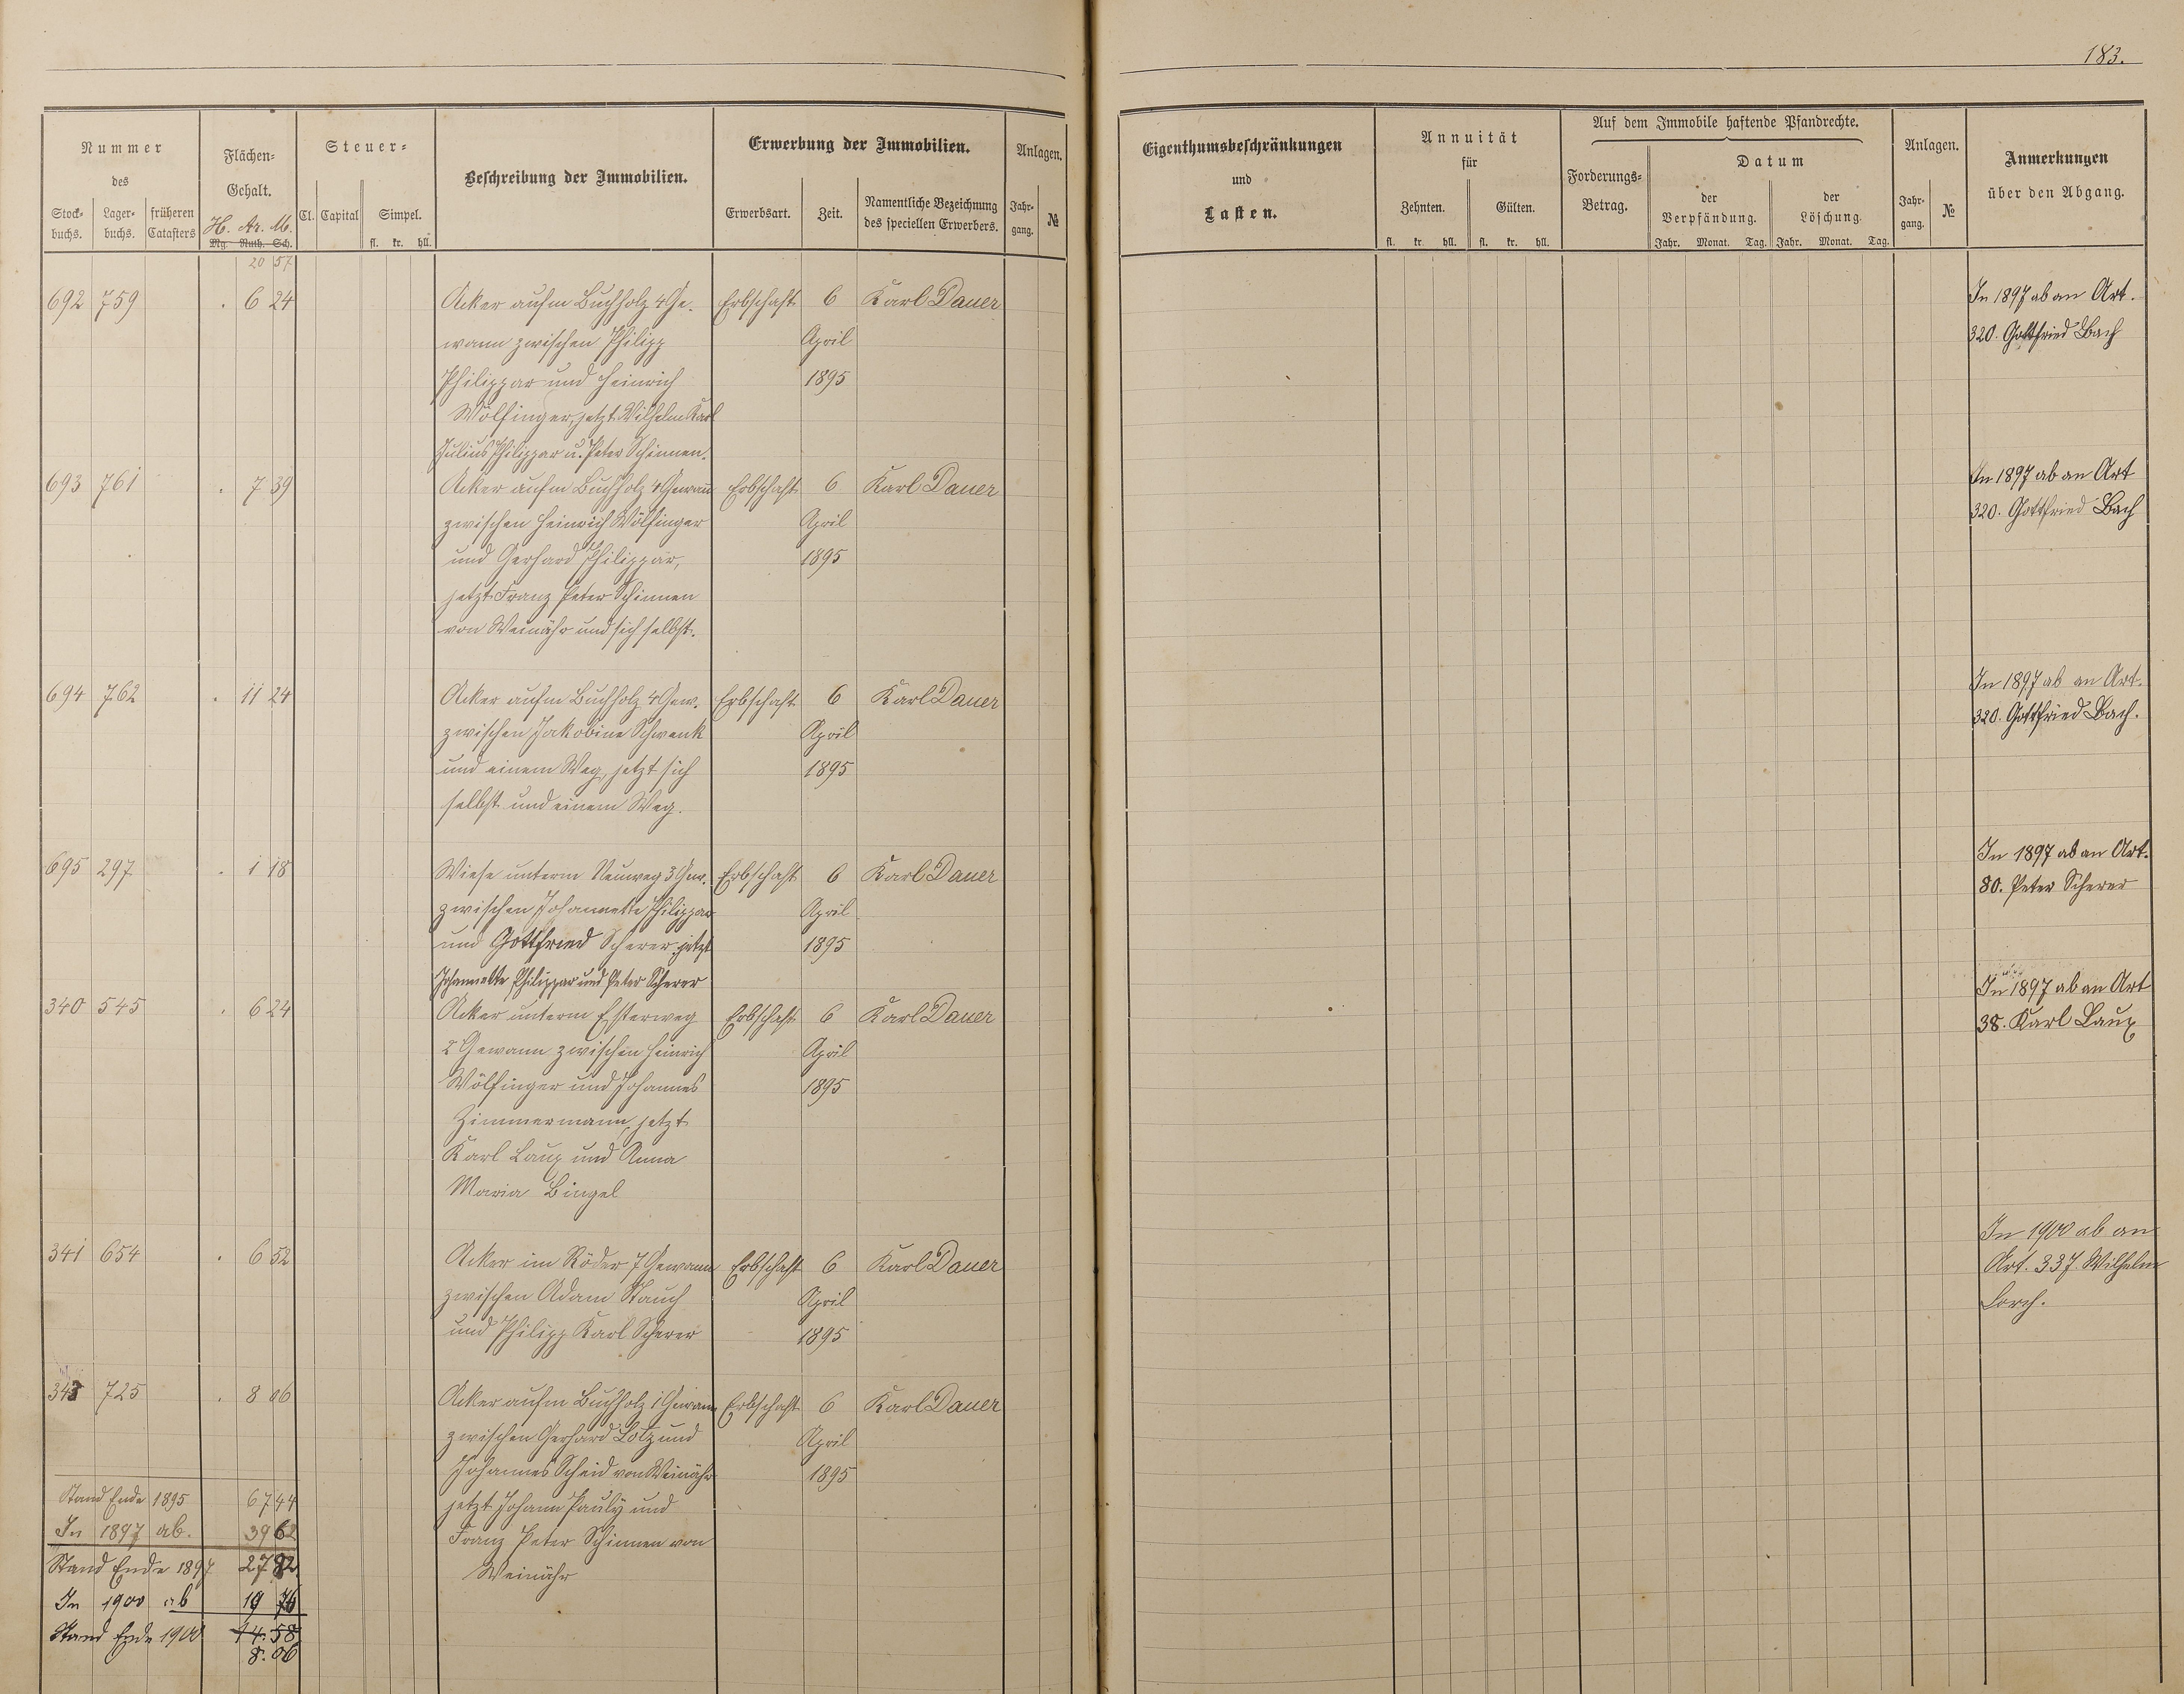 183.
Nummer
des
Stock-
buchs.
Lager-
buchs.
früheren
Catasters
Flächen-
Gehalt.
H. Ar. M.
Mg. Ruth. Sch.
Steuer-
Cl. Capital Simpel.
fl. kr. hll.
Beschreibung der Immobilien.
Erwerbung der Immobilien.
Erwerbsart. Zeit.
Namentliche Bezeichnung
des speciellen Erwerbers.
Anlagen.
Jahr-
gang.
№
Eigenthumsbeschränkungen
und
Lasten.
Annuität
für
Zehnten. Gülten.
fl. kr. hll. fl. kr. hll.
Auf dem Immobile haftende Pfandrechte.
Forderungs-
Betrag.
Datum
der
Verpfändung.
der
Löschung.
Jahr. Monat. Tag. Jahr. Monat. Tag.
Anlagen.
Jahr-
gang.
№
Anmerkungen
über den Abgang.
20 57
692 759 . 6 24 Acker aufm Buchholz 4 Ge- Erbschaft 6 Karl Dauer In 1897 ab an Art.
wann zwischen Philipp April 320. Gottfried Bach
Philippar und Heinrich 1895
Wölfinger, jetzt Wilhelm Karl
Julius Philippar u. Peter Schinnen.
693 761 . 7 39 Acker aufm Buchholz 4 Gewann Erbschaft 6 Karl Dauer In 1897 ab an Art
zwischen Heinrich Wölfinger April 320. Gottfried Bach
und Gerhard Philippar, 1895
jetzt Franz Peter Schinnen
von Weinähr und sich selbst.
694 762 . 11 24 Acker aufm Buchholz 4 Gew. Erbschaft 6 Karl Dauer In 1897 ab an Art.
zwischen Jakobine Schwenk April 320. Gottfried Bach.
und einem Weg, jetzt sich 1895
selbst und einem Weg.
695 297 . 1 18 Wiese unterm Neuweg 3 Gew. Erbschaft 6 Karl Dauer In 1897 ab an Art.
zwischen Johannette Philippar April 80. Peter Scherer
und Gottfried Scherer, jetzt 1895
Johannette Philippar und Peter Scherer
340 545 . 6 24 Acker unterm Esterweg Erbschaft 6 Karl Dauer In 1897 ab an Art
2 Gewann zwischen Heinrich April 38. Karl Laux
Wölfinger und Johannes 1895
Zimmermann, jetzt
Karl Laux und Anna
Maria Bingel
341 654 . 6 52 Acker im Röder 7 Gewann Erbschaft 6 Karl Dauer In 1900 ab an
zwischen Adam Stauch April Art. 337 Wilhelm
und Philipp Karl Scherer 1895 Lorch.
343 725 . 8 06 Acker aufm Buchholz 1 Gewann Erbschaft 6 Karl Dauer
zwischen Gerhard Lotz und April
Johannes Scheid von Weinähr 1895
jetzt Johann Pauly und
Franz Peter Schinnen von
Weinähr
Stand Ende 1895 67 44
In 1897 ab. 39 62
Stand Ende 1897 27 82
In 1900 ab 19 76
Stand Ende 1900 14. 58
8. 06